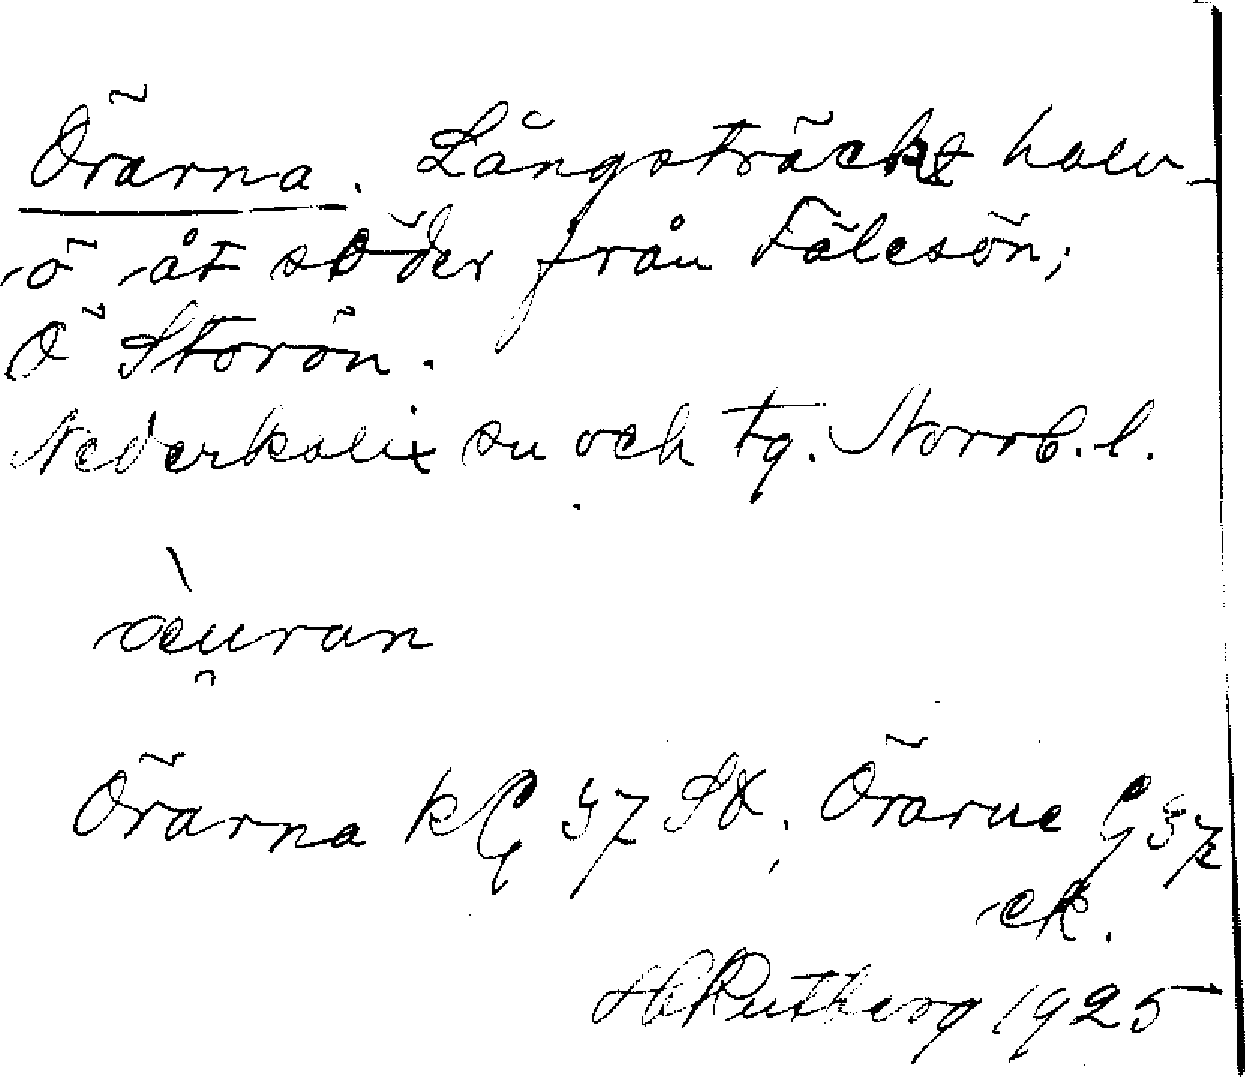 Örarna. Långsträckt halv-
ö åt söder från Fälesön,
Ö Storön.
Nederkalix sn och tg. Norrb. l.
æuran
Örarna k G 37 SO, Örarne G 37
ek.
H Rutberg 1925